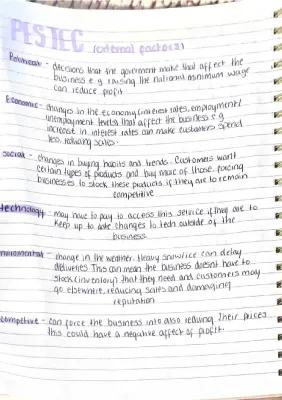 PESTEC (external factors)
Political - decisions that the government make that affect the
business e.g raising the national minimum wage
can reduce profit
Economic - changes in the economy (interest rates, employment/
unemployment levels) that affect the business e.g
increase in interest rates can make customers spend
less, reducing sales.
social - changes in buying habits and trends. Customers want
certain types of products and buy more of those, forcing
businesses to stock these products if they are to remain
competitive
technology - may have to pay to access this service if they are to
keep up to date changes to tech outside of the
business
environmental - change in the weather. Heavy snow/ice can delay
deliveries. This can mean the business doesnt have
stock (inventory) that they need and customers may
go elsewhere, reducing sales and damaging
reputation
competitive - can force the business into also reducing their prices
this could have a negative affect of profit.